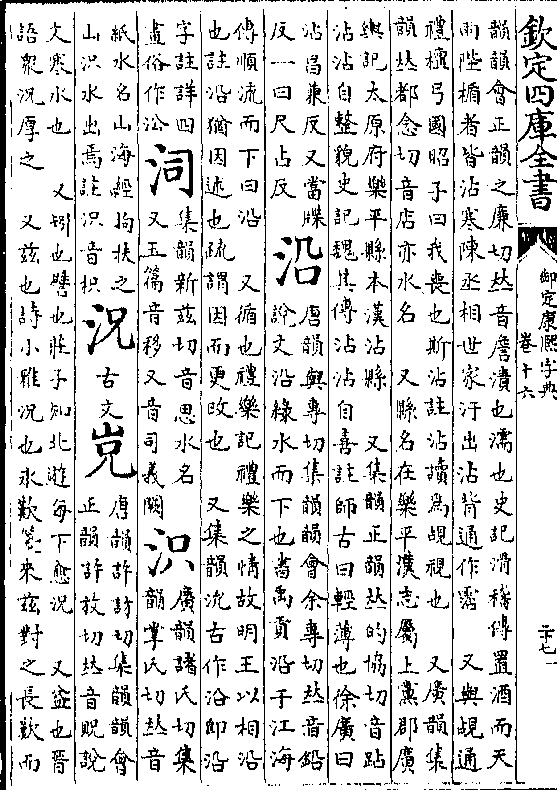 欽定四庫全書
御定康熙字典
卷十六
二十七
韻韻會正韻之廉切𠀤音詹漬也濡也史記滑稽傳置酒而天
雨陛楯者皆沾寒陳丞相世家汗出沾背通作霑 又與覘通
禮檀弓國昭子曰我喪也斯沾註沾讀爲覘視也 又廣韻集
韻𠀤都念切音店亦水名 又縣名在樂平漢志屬上黨郡廣
輿記太原府樂平縣本漢沾縣 又集韻正韻𠀤的協切音跕
沾沾自整貌史記魏其傳沾沾自喜註師古曰輕薄也徐廣曰
沾昌兼反又當牒
反一曰尺占反
沿
唐韻與專切集韻韻會余專切𠀤音鉛
說文沿緣水而下也書禹貢沿于江海
傳順流而下曰沿 又循也禮樂記禮樂之情故明王以相沿
也註沿猶因述也疏謂因而更改也 又集韻沇古作沿卽沿
字註詳四
畫俗作㳂
泀
集韻新兹切音思水名
又玉篇音移又音司義闕
泜
廣韻諸氏切集
韻掌氏切𠀤音
紙水名山海經拘扶之
山泜水出焉註泜音枳
況
古文
𡴻
唐韻許訪切集韻韻會
正韻許放切𠀤音貺說
文寒水也 又矧也譬也莊子知北遊每下愈況 又益也晉
語衆況厚之 又兹也詩小雅況也永歎箋來兹對之長歎而